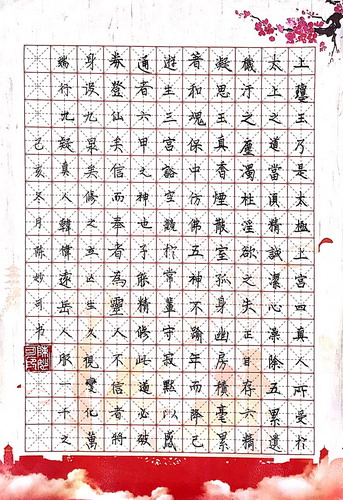 上瓊玉乃是太極上宮四真人所受於
太上之道當須精誠潔心澡除五累遺
穢汙之塵濁杜淫欲之失正目存六精
凝思玉真香煙散室孤身幽房積毫累
著和魂保中仿佛五神不踰年而降己
遊生三宮豁空競於常輩守寂默以感
通者六甲之神也子能精修此道必破
券登仙矣信而奉者為靈人不信者將
身沒九泉矣修之五止生久視變化萬
端行九疑真人韓偉遠岳人服一千之
己亥冬月陈妙司书